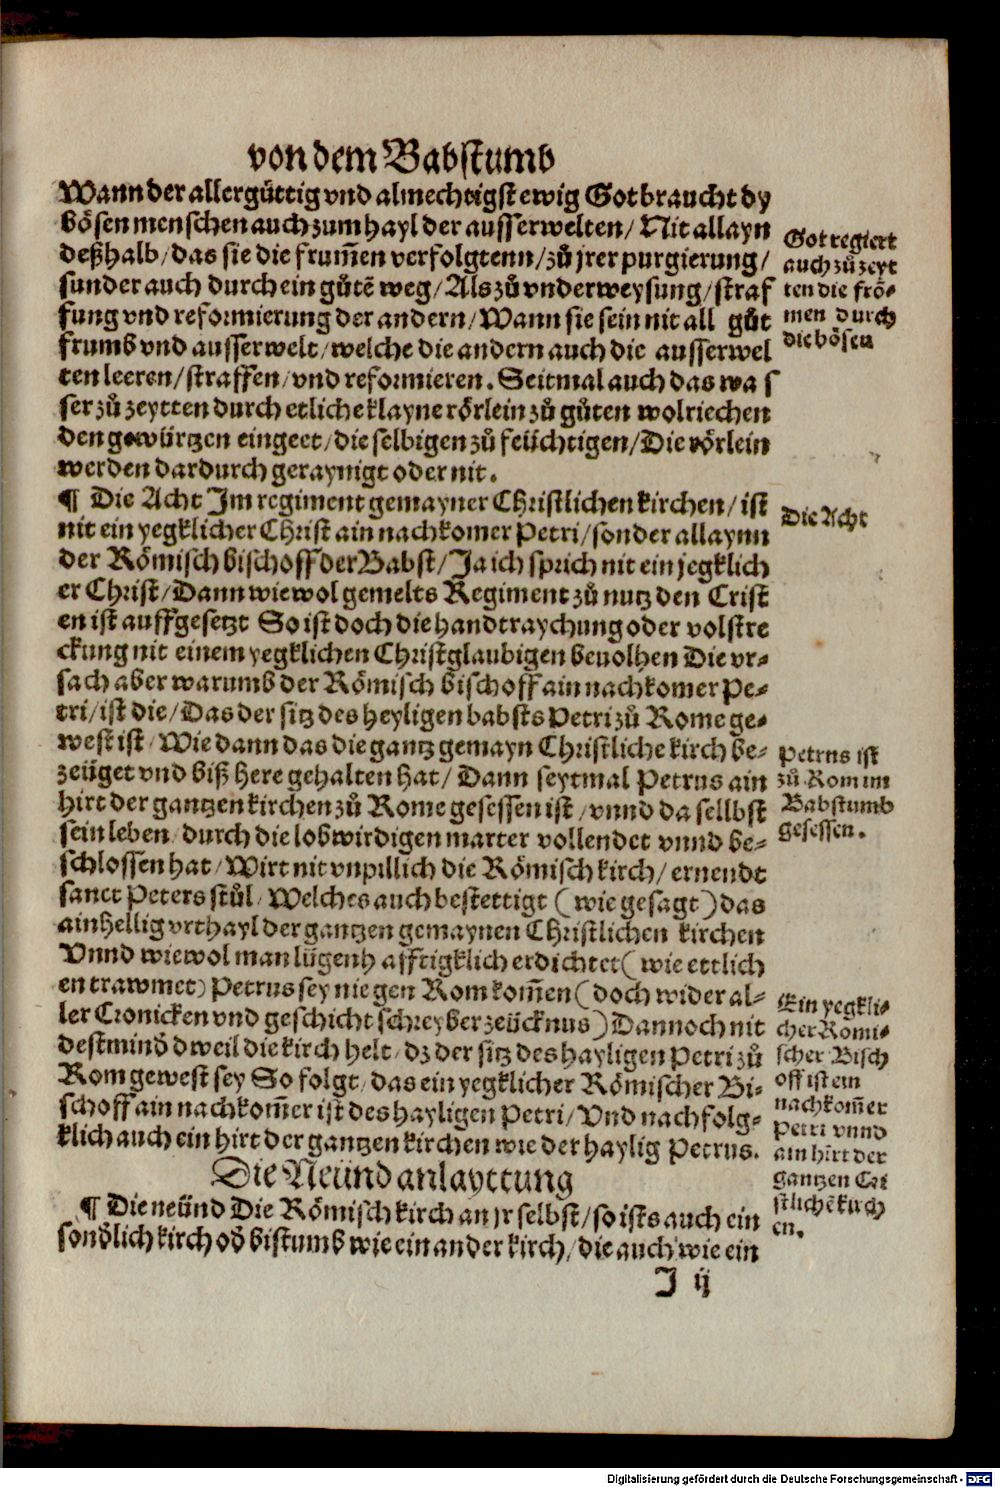 von dem Babstumb
Wann der allergüttig vnd almechtigst ewig Got braucht dy
bösen menschen auch zum hayl der ausserwelten/ Nit allayn
deßhalb/ das sie die frum̃en verfolgtenn/ zů jrer purgierung/
sunder auch durch ein gůtẽ weg/ Als zů vnderweysung/ straf
fung vnd reformierung der andern/ Wann sie sein nit all gůt
frumb vnd ausserwelt/ welche die andern auch die ausserwel
ten leeren/ straffen/ vnd reformieren. Seitmal auch das was
ser zů zeytten durch etliche klayne rörlein zů gůten wolriechen
den gewürtzen eingeet/ die selbigen zů feüchtigen/ Die rörlein
werden dardurch geraynigt oder nit.
Got regiert
auch zů zeyt
ten die frö-
men durch
die bösen
¶ Die Acht Im regiment gemayner Christlichen kirchen/ ist
nit ein yegklicher Christ ain nachkomer Petri/ sonder allaynn
der Römisch bischoff der Babst/ Ja ich sprich nit ein jegklich
er Christ/ Dann wiewol gemelts Regiment zů nutz den Crist
en ist auffgesetzt So ist doch die handtraychung oder volstre
ckung nit einem yegklichen Christglaubigen beuolhen Die vr-
sach aber warumb der Römisch bischoff ain nachkomer Pe-
tri/ ist die/ Das der sitz des heyligen babsts Petri zů Rome ge-
west ist/ Wie dann das die gantz gemayn Christliche kirch be-
zeüget vnd biß here gehalten hat/ Dann seytmal Petrus ain
hirt der gantzen kirchen zů Rome gesessen ist/ vnnd da sellbst
sein leben/ durch die lobwirdigen marter vollendet vnnd be-
schlossen hat/ Wirt nit vnpillich die Römisch kirch/ ernendt
sanct Peters stůl/ Welches auch bestettigt (wie gesagt) das
ainhellig vrthayl der gantzen gemaynen Christlichen kirchen
Vnnd wiewol man lügenhafftigklich erdichtet (wie ettlich
en trawmet) Petrus sey nie gen Rom kom̃en (doch wider al-
ler Cronicken vnd geschicht schreyber zeücknus) Dannoch nit
destmind̄ dweil die kirch helt/ dz der sitz des hayligen Petri zů
Rom gewest sey So folgt/ das ein yegklicher Römischer Bi-
schoff ain nachkom̃er ist des hayligen Petri/ Vnd nachfolg-
klich auch ein hirt der gantzen kirchen wie der haylig Petrus.
Die Acht
Petrus ist
zů Rom im
Babstumb
gesessen.
Ein yegkli-
cher Römi-
scher Bisch
off ist ein
nachkom̃er
Petri vnnd
ain hirt der
gantzen Cri
stlichẽ kirch
en.
Die Neünd anlayttung
¶ Die neünd Die Römisch kirch an jr selbst/ so ists auch ein
sond̄lich kirch od̄ bistumb wie ein ander kirch/ die auch wie ein
J ij
Digitalisierung gefördert durch die Deutsche Forschungsgemeinschaft - DFG